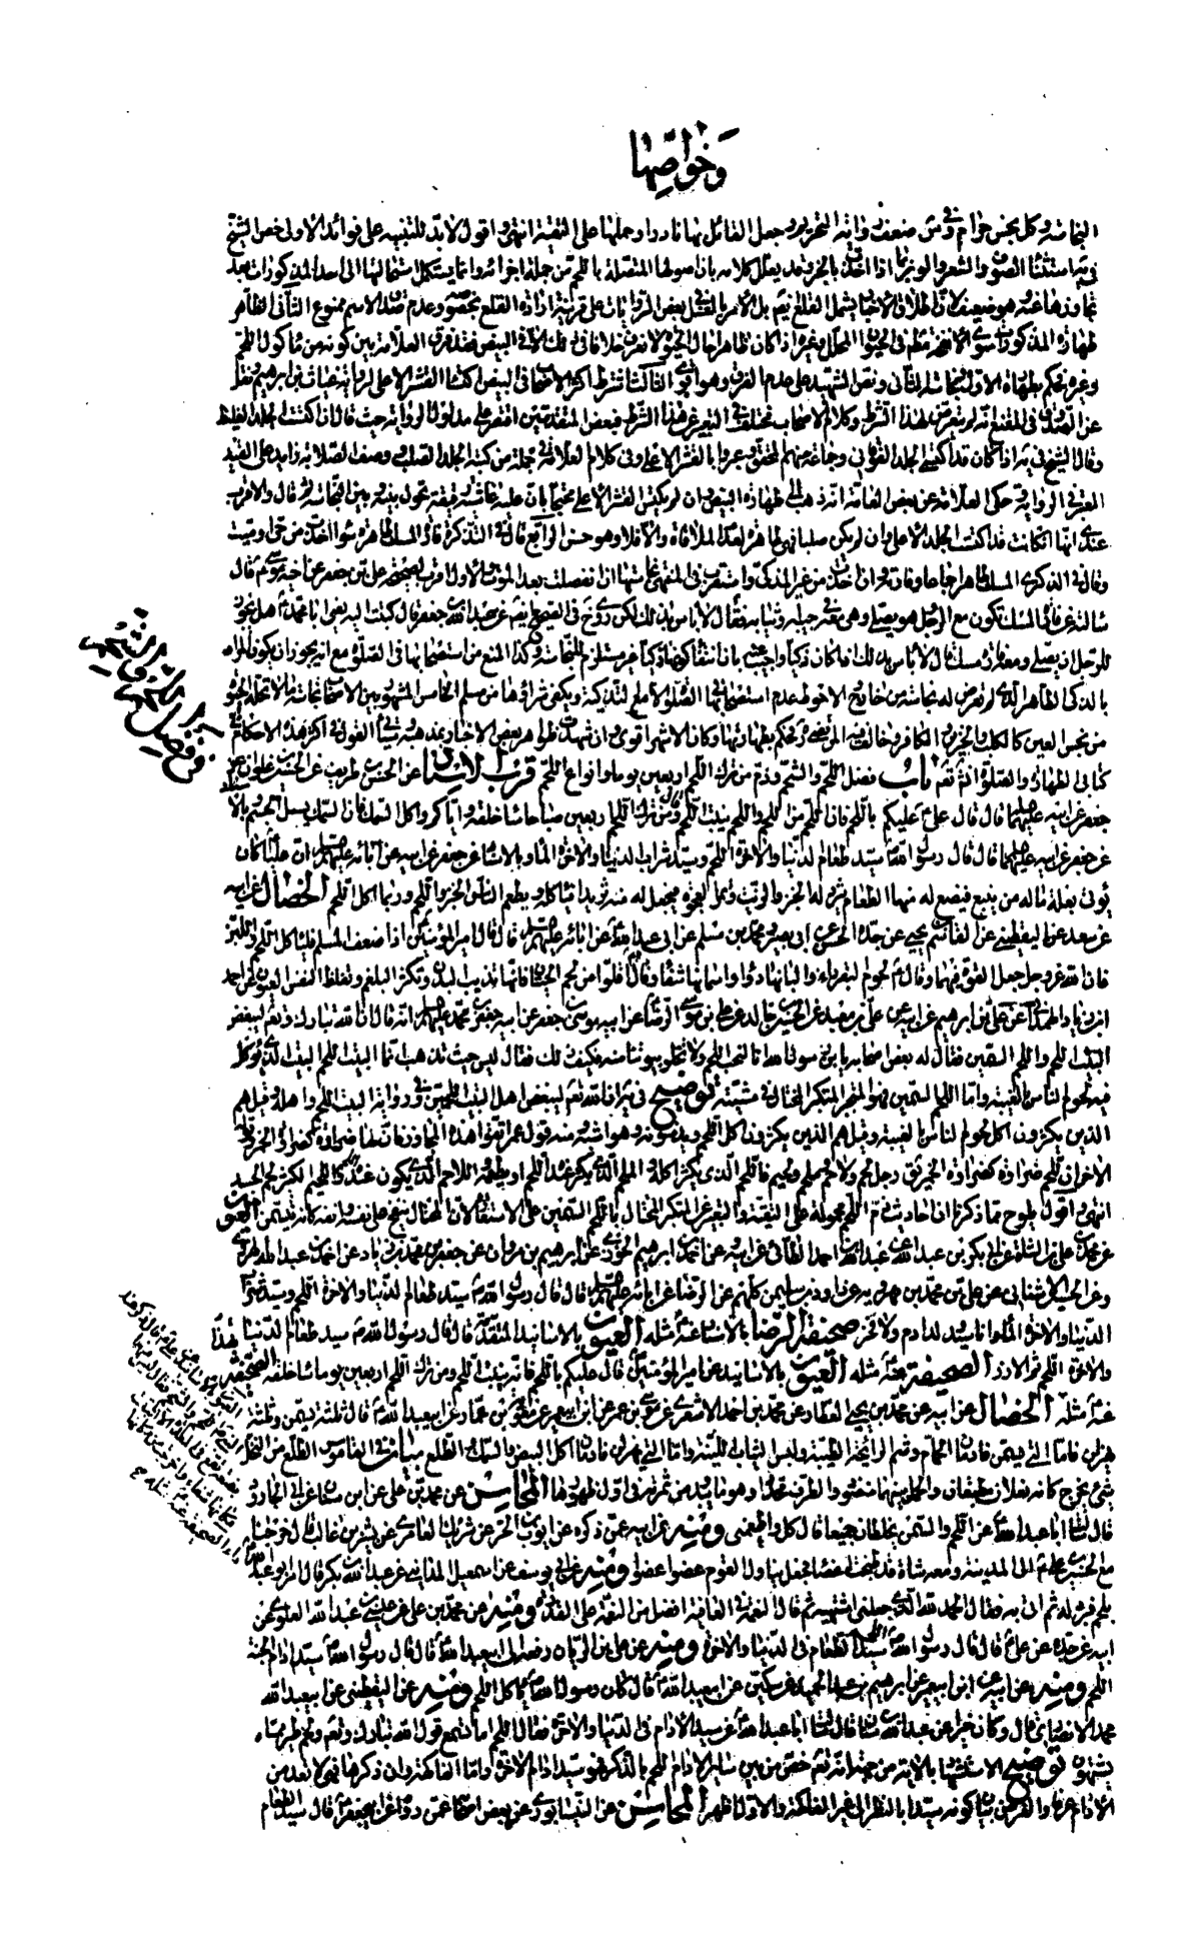 وخواصّها
النجاسة وكل نجس حرام وفي متن ضعف وانه التحرير وجعل القائل بها نادرا وحملها على التقية انتهى واقول لا بد للتنبيه على فوائد الاولى خص الشيخ
في استثناء الصوف والشعر والوبر بما اذا اخذت بالجز وقد يعلل كلامه بان اصولها المتصلة باللحم من جملة اجزائه وانما يستكمل استحالتها الى احد المذكورات بعد
تجاوزها عنه وهو ضعيف لاطلاق الاخبار يشمل القلع ايضا بل الامر بالغسل في بعض الروايات على قرينة ارادة القلع بخصوصه وعدم صدق الاسم ممنوع الثاني الظاهر
طهارة المذكورات سوى الانفحة في الحيوان المحلل وغيره اذا كان طاهرا حال الحيوة لا نعرف خلافا في ذلك الا في البيض فقد فرق العلامة بين كونه من ماكول اللحم
وغيره فحكم بطهارة الاول ونجاسة الثاني ونص الشهيد على عدم الفرق وهو اقوى الثالث اشترط اكثر الاصحاب في البيض اكتساء القشر الاعلى لرواية غياث بن ابراهيم ونقل
عن الصدوق في المقنع انه لم يتعرض لهذا الشرط وكلام الاصحاب مختلف في التعبير عن هذا الشرط فبعض المتقدمين اقتصر على مدلول الرواية حيث قال ان اكتست الجلد الغليظ
وقال الشيخ في اذا كان قد اكتسى الجلد الفوقاني وجماعة منهم المحقق عبروا بالقشر الاعلى وفي كلام العلامة في جملة من كتبه الجلد الصلب ووصف الصلابة زايد على القيد
المعتبر في الرواية حكى العلامة عن بعض العامة انه ذهب الى طهارة البيض وان لم يكتس القشر الاعلى محتجا بان عليه غاشية رقيقة تحول بينه وبين النجاسة ثم قال والاقرب
عندي انها ان كانت قد اكتست الجلد الاعلى وان لم يكن صلبا فهي طاهرة لعدم الملاقاة والا فلا وهو حسن الرابع قال في التذكرة فارة المسك طاهرة سواء اخذت من حي او ميت
وقال في الذكرى المسك طاهر اجماعا وفارته وان اخذت من غير المذكى واستقرب في المنتهى نجاستها ان انفصلت بعد الموت والاول اقرب لصحيحة علي بن جعفر عن اخيه موسى ع قال
سالته عن فارة المسك تكون مع الرجل هو يصلي وهي معه في جيبه او ثيابه فقال لا باس بذلك لكن روى في الصحيح ايضا عن عبد الله بن جعفر قال كتبت اليه يعني ابا محمد ع هل يجوز
للرجل ان يصلي ومعه فارة مسك قال لا باس بذلك اذا كان ذكيا واجيب بان انتفاء كونها ذكيا غير مستلزم للنجاسة وكذا المنع من استصحابها في الصلوة مع انه يجوز ان يكون المراد
بالذكي الطاهر الذي لم تعرض له نجاسة من خارج والاحوط عدم استصحابها في الصلوة الا مع التذكية ويكفي شراؤها من مسلم الخامس المشهور بين الاصحاب نجاسة ما لا تحله الحيوة
من نجس العين كالكلب والخنزير والكافر وخالف فيه المرتضى ره فحكم بطهارتها وكان الاشهر اقوى وان شهدت ظواهر بعض الاخبار بمذهبه القول في اكثر هذه الاحكام في
كتابي الطهارة والصلوة انش تعم باب فضل اللحم والشحم وذم من ترك اللحم اربعين يوما وانواع اللحم قرب الاسناد عن الحسن بن ظريف عن الحسين بن علوان عن
جعفر عن ابيه عليهما قال قال علي ع عليكم باللحم فان اللحم من اللحم واللحم ينبت اللحم وقال من ترك اللحم اربعين صباحا ساء خلقه واياكم واكل السمك فان السمك يسل الجسم بالا
عن جعفر عن ابيه عليهما قال قال رسول الله ص سيد طعام الدنيا والاخرة اللحم وسيد شراب الدنيا والاخرة الماء وبالاسناد عن جعفر عن ابيه عن آبائه عليهم ان عليا كان
يؤتى بغلة ماله من ينبع فيصنع له منها الطعام يثرد له الخبز والزيت وتمر العجوة فيجعل له منه ثريدا فياكله ويطعم الناس الخبز واللحم وربما اكل اللحم الخصال عن ابيه
عن سعد عن اليقطيني عن القاسم بن يحيى عن جده الحسن عن ابي بصير ومحمد بن مسلم عن ابي عبد الله ع عن آبائه عليهم قال قال امير المؤمنين اذا ضعف المسلم فلياكل اللحم واللبن
فان الله عز وجل جعل القوة فيهما وقال ع لحوم البقر داء والبانها دواء واسمانها شفاء وقال اقلوا من لحم الحيتان فانها تذيب البدن وتكثر البلغم وتغلظ النفس العيون عن احمد
ابن زياد الهمداني عن علي بن ابراهيم عن ابيه عن علي بن معبد عن الحسين بن خالد عن علي بن موسى الرضا ع عن ابيه موسى بن جعفر عن ابيه جعفر بن محمد عليهم انه قال ان الله تبارك وتعم ليبغض
البيت اللحم واللحم السمين فقال له بعض اصحابه يا بن رسول الله انا لنحب اللحم ولا تخلو بيوتنا منه فكيف ذلك فقال ليس حيث تذهب انما البيت اللحم البيت الذي يؤكل
فيه لحوم الناس بالغيبة واما اللحم السمين فهو المتجبر المتكبر المختال في مشيته توضيح في ية ان الله تعم ليبغض اهل البيت اللحمين وفي رواية البيت اللحم واهله قيل هم
الذين يكثرون اكل لحوم الناس بالغيبة وقيل هم الذين يكثرون اكل اللحم ويدمنونه وهو اشبه ومنه قول عمر اتقوا هذه المجازر فان لها ضراوة كضراوة الخمر وقوله
الاخر ان للحم ضراوة كضراوة الخمر يق رجل لحم ولاحم وملحم ولحيم فاللحم الذي يكثر اكله والملحم الذي يكثر عنده اللحم او يطعمه اللاحم الذي يكون عنده لحم واللحيم الكثير لحم الجسد
انتهى واقول يلوح مما ذكرنا ان احاديث ذم اللحم محمولة على التقية والتعبير عن المتكبر المختال باللحم السمين على الاستعارة لان المختال ينفخ على نفسه وانفه كانه يتسمن العيون
عن محمد بن علي بن الشاه عن ابي بكر بن عبد الله عن عبد الله بن احمد الطائي عن ابيه وعن احمد بن ابراهيم الخوزي عن ابراهيم بن مروان عن جعفر بن محمد بن زياد عن احمد بن عبد الله الهروي
وعن الحسين الاشناني عن علي بن محمد بن مهرويه عن داود بن سليمن كلهم عن الرضا عن آبائه عليهم قال قال رسول الله ص سيد طعام الدنيا والاخرة اللحم وسيد شراب
الدنيا والاخرة الماء وانا سيد ولد ادم ولا فخر صحيفة الرضا بالاسناد عنه ع مثله العيون بالاسانيد المتقدمة قال قال رسول الله ص سيد طعام الدنيا
والاخرة اللحم ثم الارز الصحيفة عنه ع مثله العيون بالاسانيد عن امير المؤمنين ع قال عليكم باللحم فانه ينبت اللحم ومن ترك اللحم اربعين يوما ساء خلقه الصحيفة
عنه ع مثله الخصال عن ابيه عن محمد بن يحيى العطار عن محمد بن احمد الاشعري عن موسى بن عمر عن ابن ابي عمير عن اسحق بن عمار عن ابي عبد الله ع قال ثلثة يسمن وثلثة
يهزلن فاما التي يسمن فادمان الحمام وشم الرايحة الطيبة ولبس الثياب اللينة واما التي يهزلن فادمان اكل البيض والسمك والطلع بيان في القاموس الطلع من النخل
شيء يخرج كانه نعلان مطبقان والحمل بينهما منضود والطرف محدد او هو ما يبدو من ثمرته في اول ظهورها المحاسن عن محمد بن علي عن ابن سنان عن ابي الجارود
قال سئلت ابا عبد الله ع عن اللحم والسمن يخلطان جميعا قال كل واطعمني ومنه عن ابيه عمن ذكره عن ايوب بن الحر عن شريك العامري عن بشر بن غالب قال خرجنا
مع الحسين بن علي ع الى المدينة ومعه شاة قد طبخت اعضاء فجعل يناول القوم عضوا عضوا ومنه عن ابي يوسف عن اسمعيل المدائني عن عبد الله بن بكير قال امر ابو عبد الله
بلحم فبرد له ثم اتي به فقال الحمد لله الذي جعلني اشتهيه ثم قال النعمة في العافية افضل من النعمة على القدرة ومنه عن محمد بن علي عن عيسى بن عبد الله العلوي عن
ابيه عن جده عن علي ع قال قال رسول الله ص اللحم سيد الطعام في الدنيا والاخرة ومنه عن علي بن الريان رفعه الى ابي عبد الله ع قال قال رسول الله ص سيد ادام الجنة
اللحم ومنه عن ابيه عن ابن ابي عمير عن ابراهيم بن عبد الحميد عن سكين عن ابي عبد الله ع قال كان رسول الله ص ياكل اللحم ومنه عن اليقطيني عن ابي عبد الله
محمد الانصاري قال وكان خيرا عن عبد الله بن سنان قال سئلت ابا عبد الله ع عن سيد الادام في الدنيا والاخرة فقال اللحم اما تسمع قول الله تبارك وتعم ولحم طير مما
يشتهون توضيح الاستشهاد بالاية من حيث انه تعم خص من بين ساير الادام اللحم بالذكر فهو سيد ادام الاخرة واما الفاكهة وان ذكرها فهي لا تعد من
الادام عرفا والغرض بيان كونه سيدا بالنظر الى غير الفاكهة والاول اظهر المحاسن عن النيسابوري عن بعض اصحابنا عمن رواه عن ابي جعفر ع قال سيد الطعام